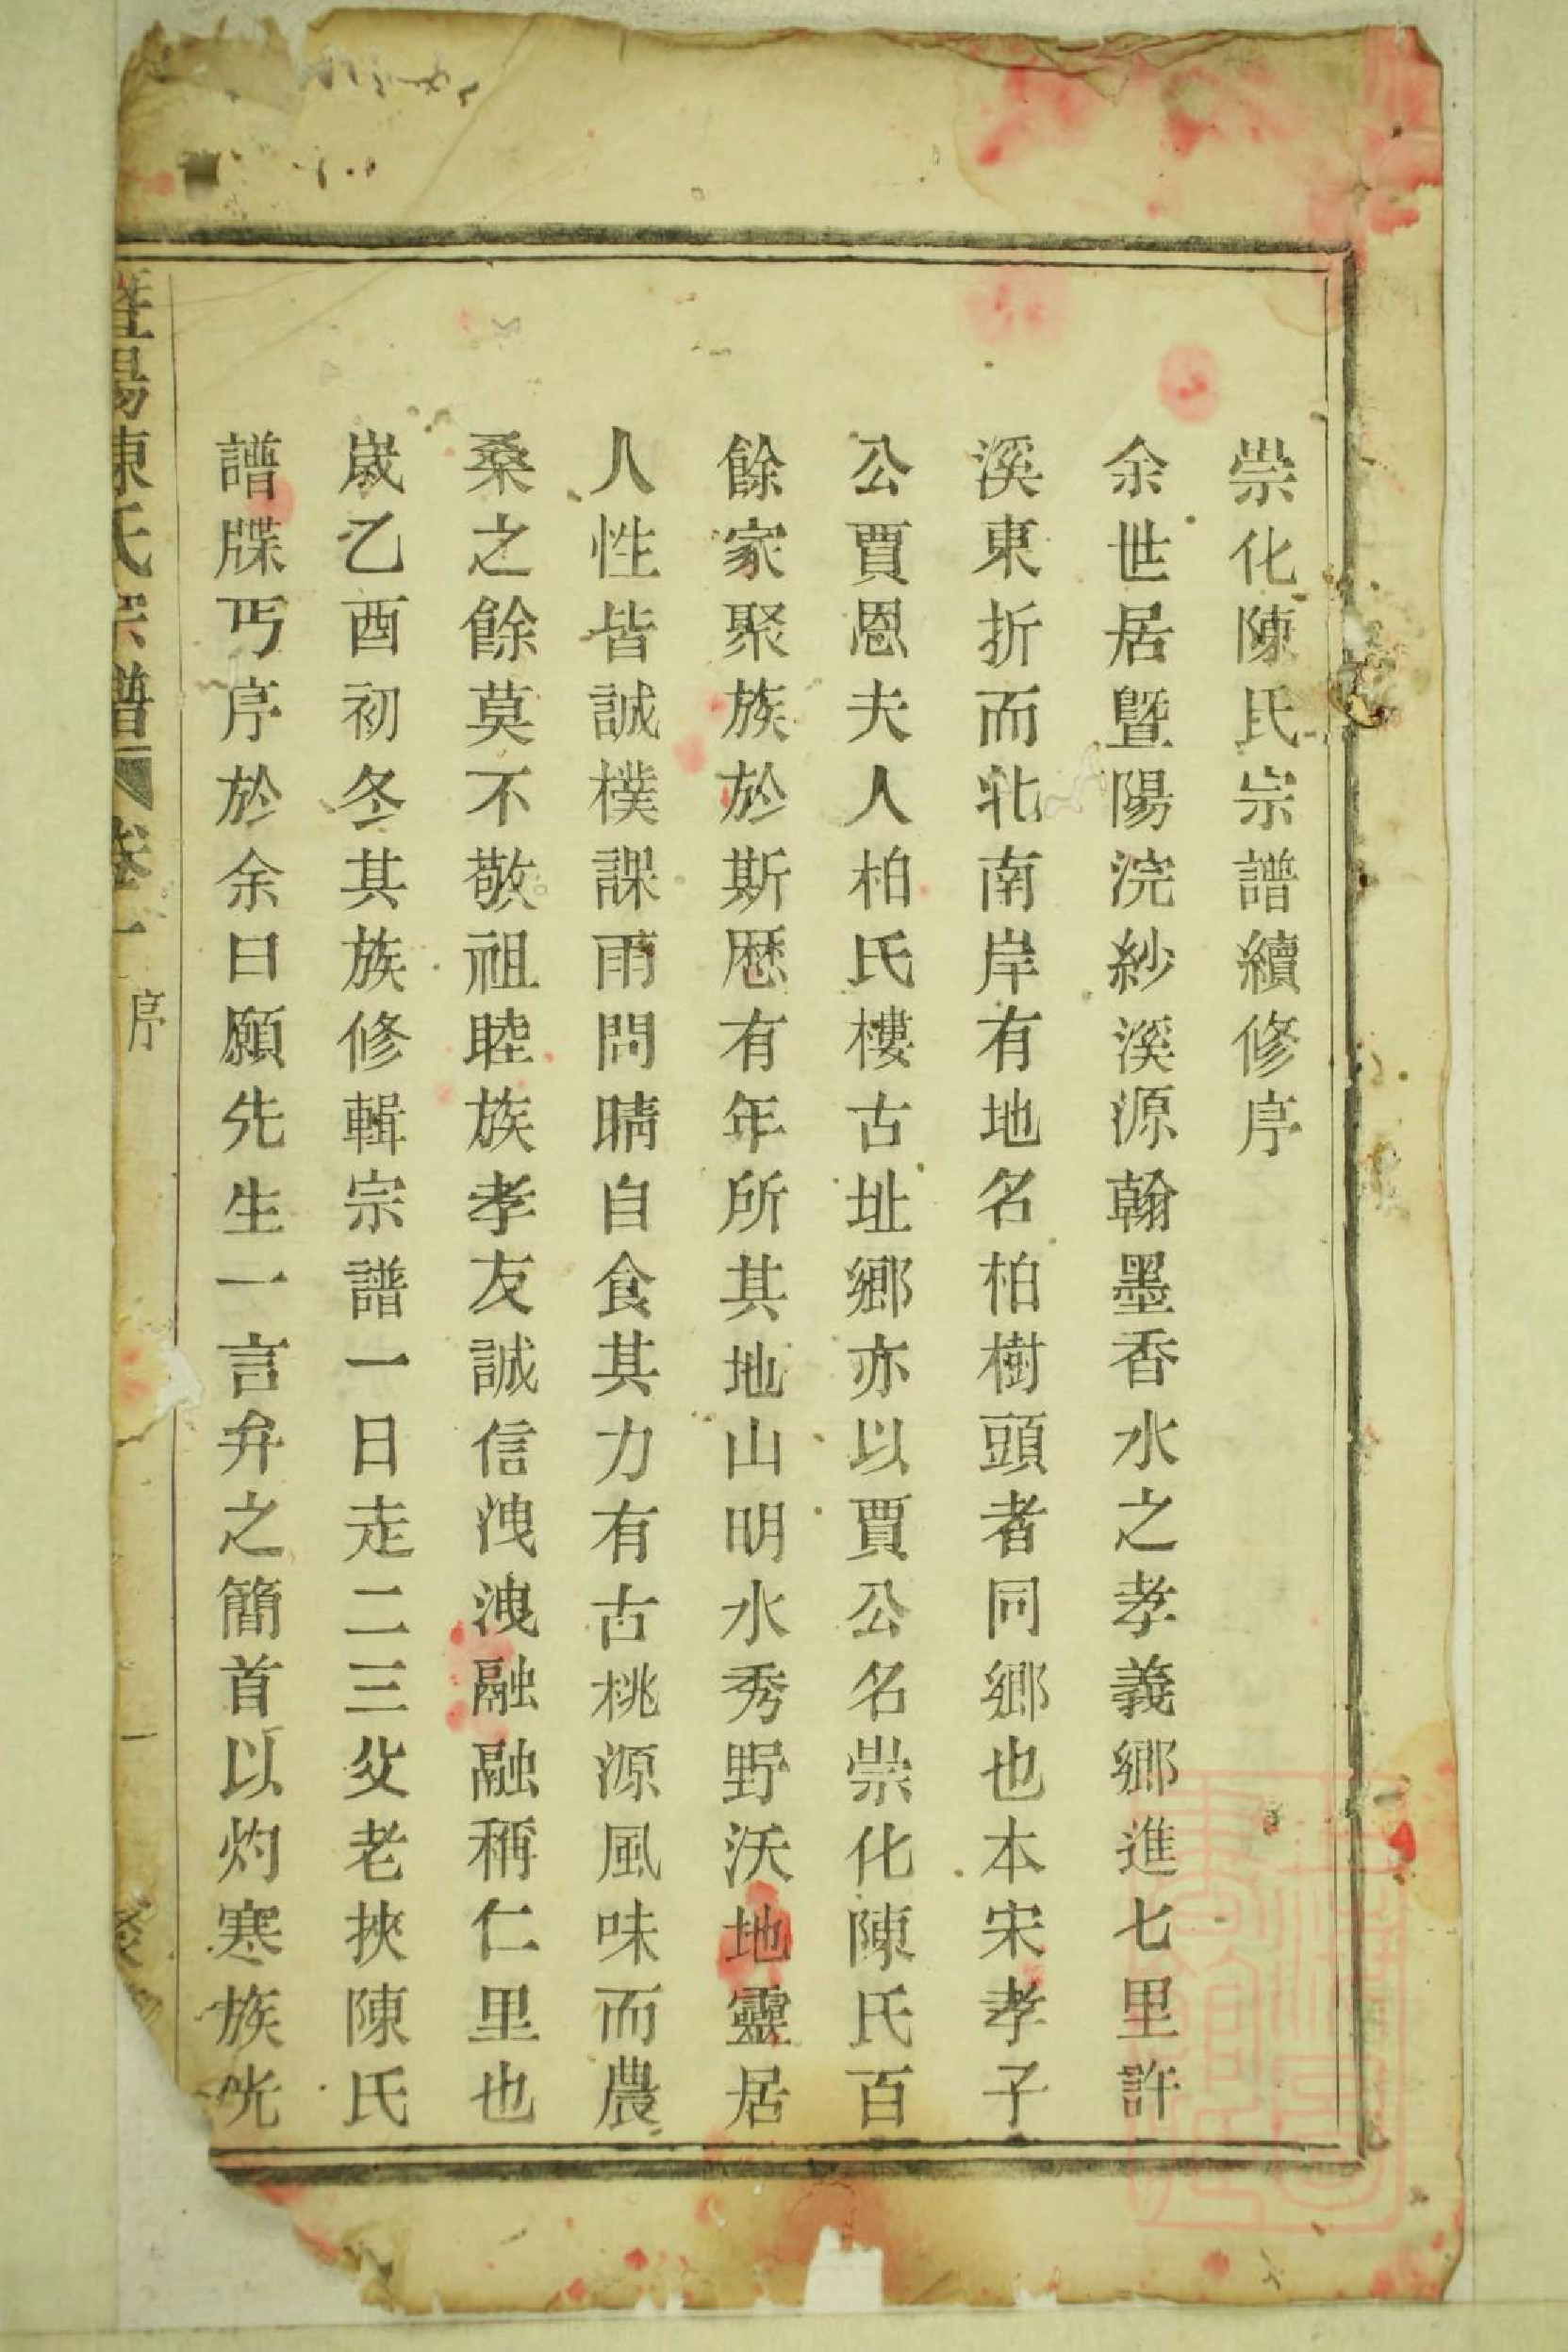 崇化陳氏宗譜續修序
余世居曁陽浣紗溪源翰墨香水之孝義鄉進七里許
溪東折而北南岸有地名柏樹頭者同鄉也本宋孝子
公賈恩夫人柏氏樓古址鄉亦以賈公名崇化陳氏百
餘家聚族於斯歷有年所其地山明水秀野沃地靈居
人性皆誠樸課雨問晴自食其力有古桃源風味而農
桑之餘莫不敬祖睦族孝友誠信洩洩融融稱仁里也
歲乙酉初冬其族修輯宗譜一日走二三父老挾陳氏
譜牒丐序於余曰願先生一言弁之簡首以灼寒族光
暨陽陳氏宗譜 卷一 序 一